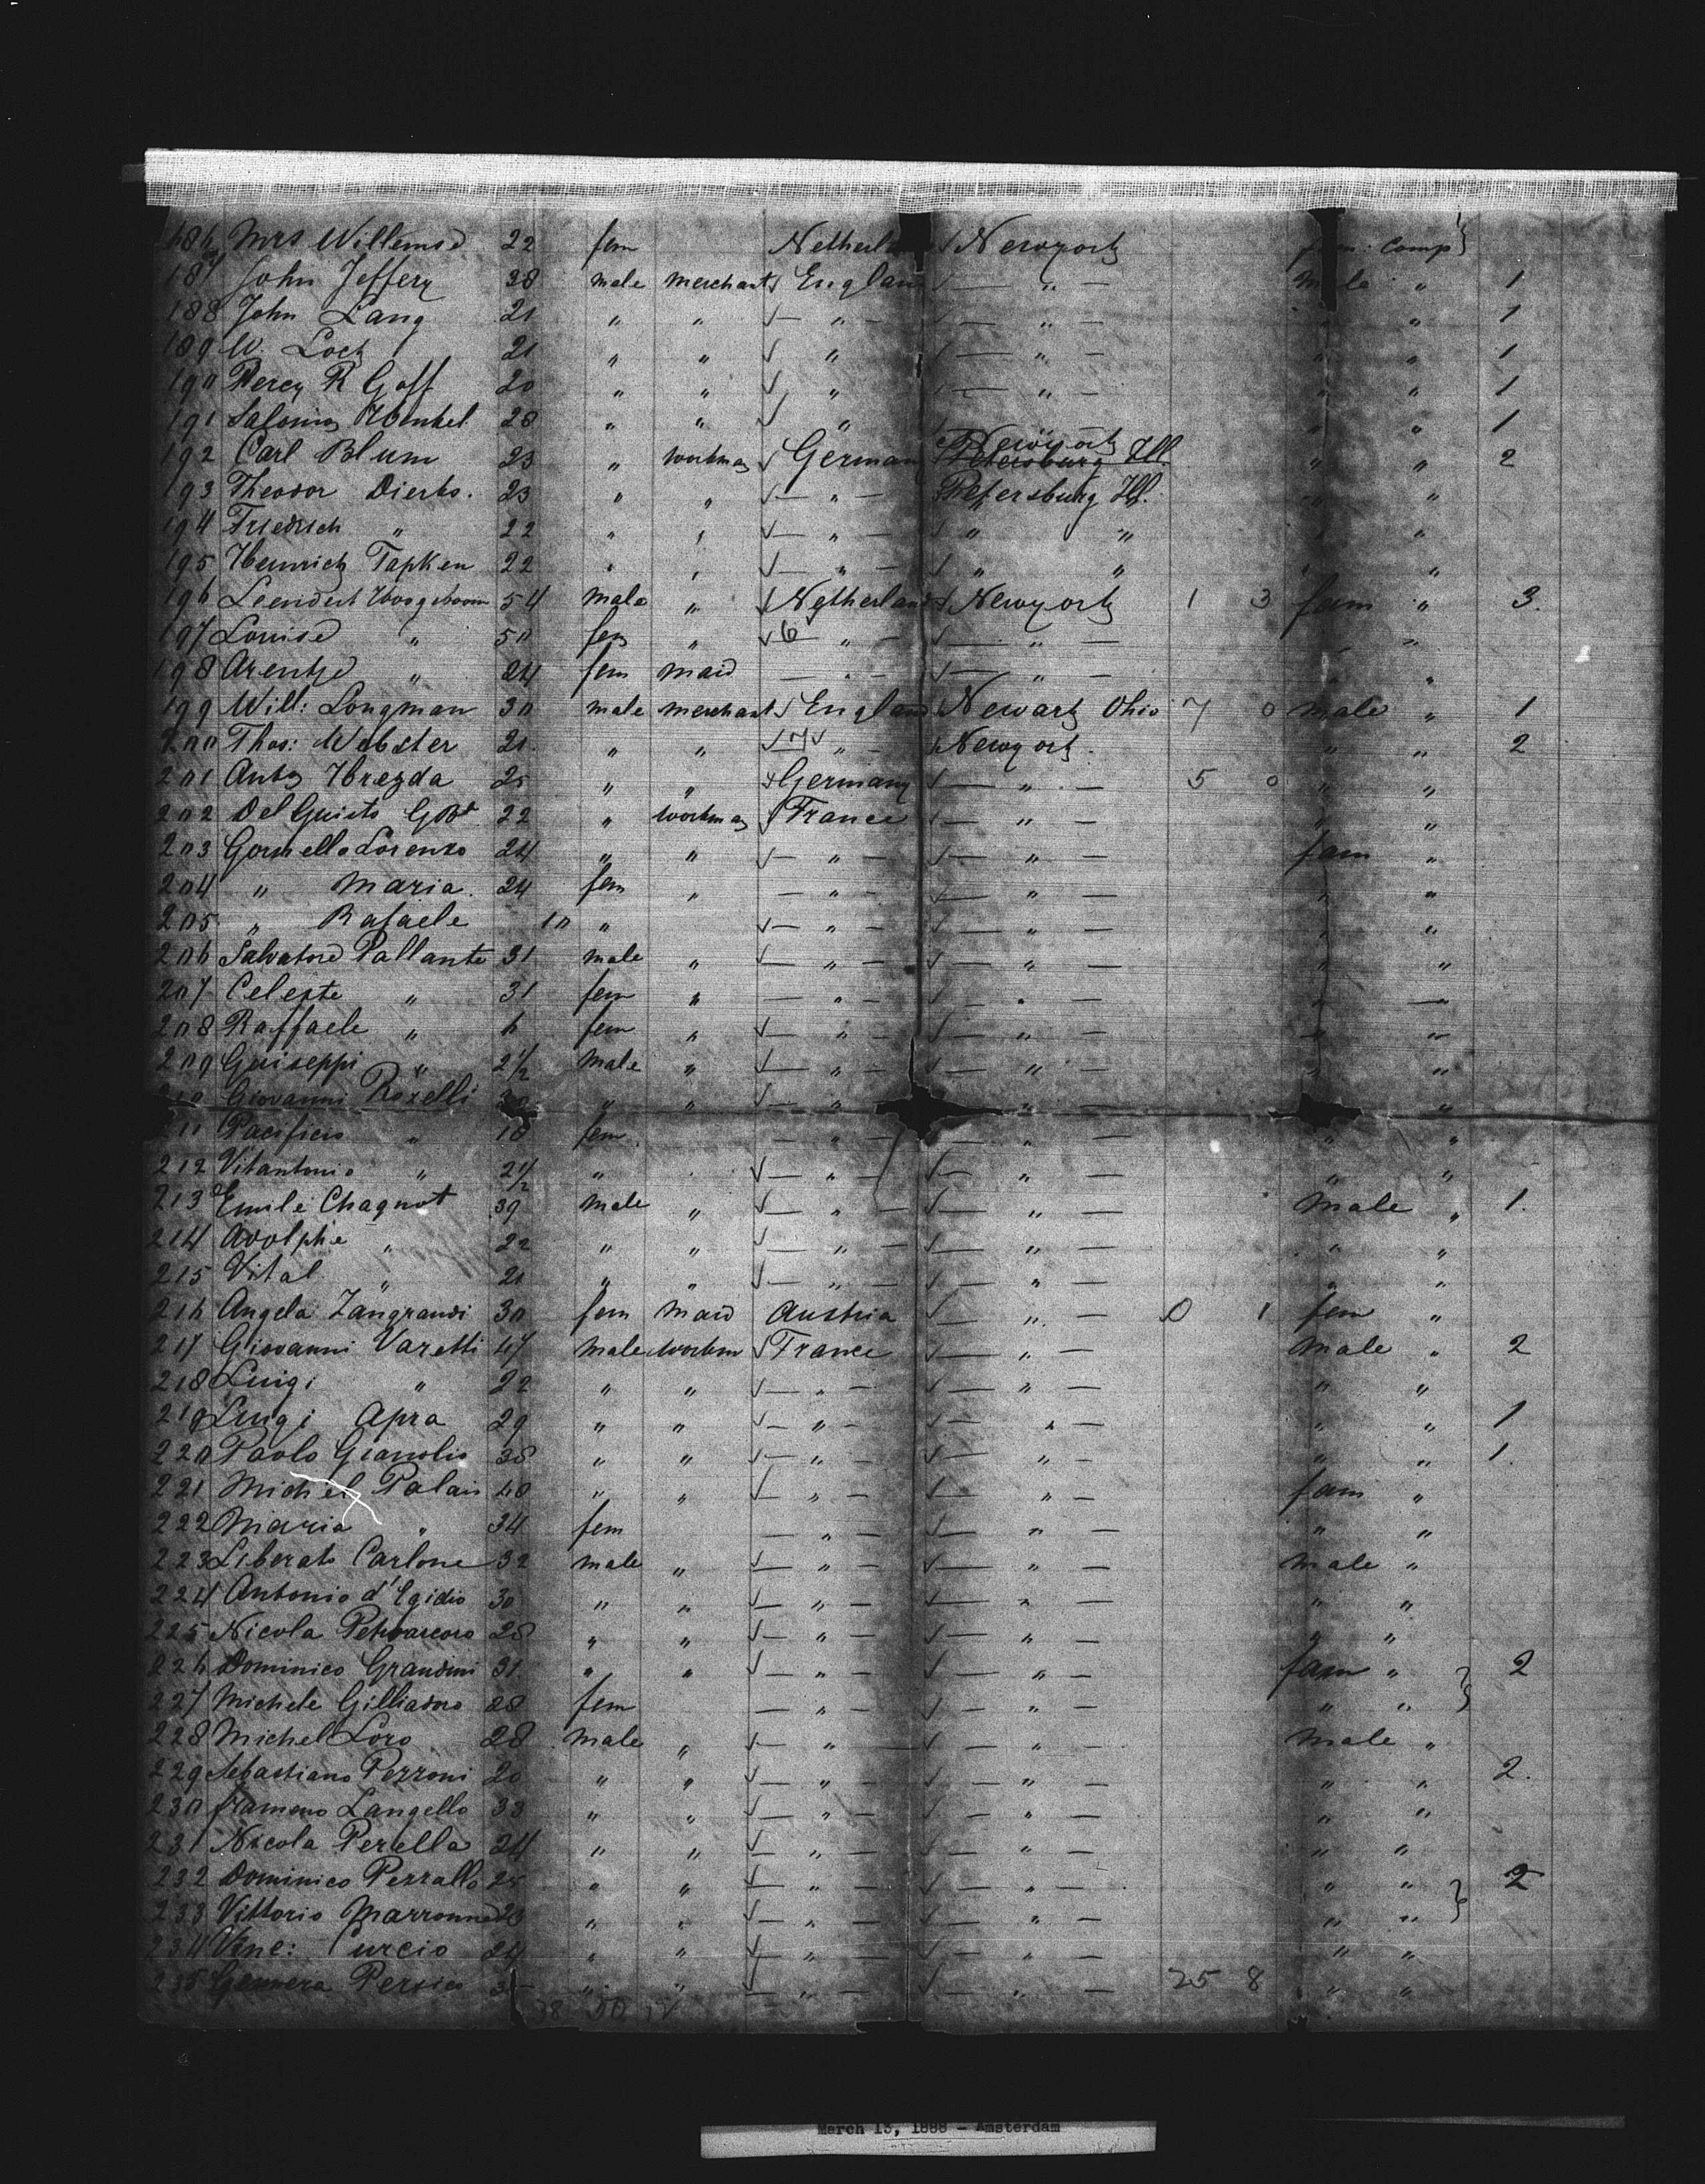 186 Mrs Willemse 22 fem Netherl Newyork : Comp
187 John Jeffery 28 male merchant England " male " 1
188 John Lang 21 " " " " " 1
189 W. Lock 21 " " " " " " 1
190 Percy R Goff 20 " " " " " " 1
191 Henkel 28 " " " Newyork " " 1
192 Carl Blum 23 " workman German Petersburg Ill. " " 2
193 Theodor Dierks. 23 " " " Petersburg Ill. " "
194 Friedrich " 22 " " " " " " "
195 Heinrich Tapken 22 " " " " " " "
196 Leendert Hoogeboom 54 male " Netherland Newyork 1 3 fam " 3.
197 Louise " 50 fem " 6 " " " "
198 Arentje " 24 fem maid " " " "
199 Will: Longman 30 male merchant England Newark Ohio 7 0 male " 1
200 Thos: Webster 21 " " " Newyork " " 2
201 Hrezda 25 " " Germany " 5 0 " "
202 Del Guisto 22 " workman France " " "
203 Lorenzo 24 " " " " fam "
204 " Maria 24 fem " " " " "
205 " Rafaele 10 " " " " "
206 Salvatore Pallante 31 male " " " " "
207 Celeste " 31 fem " " " " "
208 Raffaele " 6 fem " " " " "
209 Guiseppi " 2½ male " " " " "
210 Giovanni Rozelli " " " " "
211 Pacificio " 18 fem " " " "
212 Vitantonio " 2½ " " " " "
213 Emile Chagnot 39 male " " " male " 1.
214 Adolphe " 22 " " " " " "
215 Vital " 21 " " " " " "
216 Angela Zangrandi 30 fem maid Austria " 0 1 fem "
217 Giovanni Varetti 47 male workm France " male " 2
218 Luigi " 22 " " " " " "
219 Luigi Apra 29 " " " " " " 1
220 Paolo Gianolio 38 " " " " " " 1.
221 Michel Palais 40 " " " " fam "
222 Maria " 34 fem " " " "
223 Liberato Carlone 32 male " " " male "
224 Antonio d'Egidio 30 " " " " " "
225 Nicola 28 " " " " " "
226 Dominico Grandini 31 " " " " fam " 2
227 Michele 28 fem " " " "
228 Michel Loro 28 male " " " male "
229 Sebastiano Pezzoni 20 " " " " " " 2.
230 Langello 33 " " " " " "
231 Nicola Perella 24 " " " " " "
232 Dominico Perrallo 25 " " " " " " 2
233 Vittorio Marronne 23 " " " " " "
234 Vinc: Curcio 24 " " " " " "
235 Persico " " " " 25 8 " "
March 13, 1888 - Amsterdam